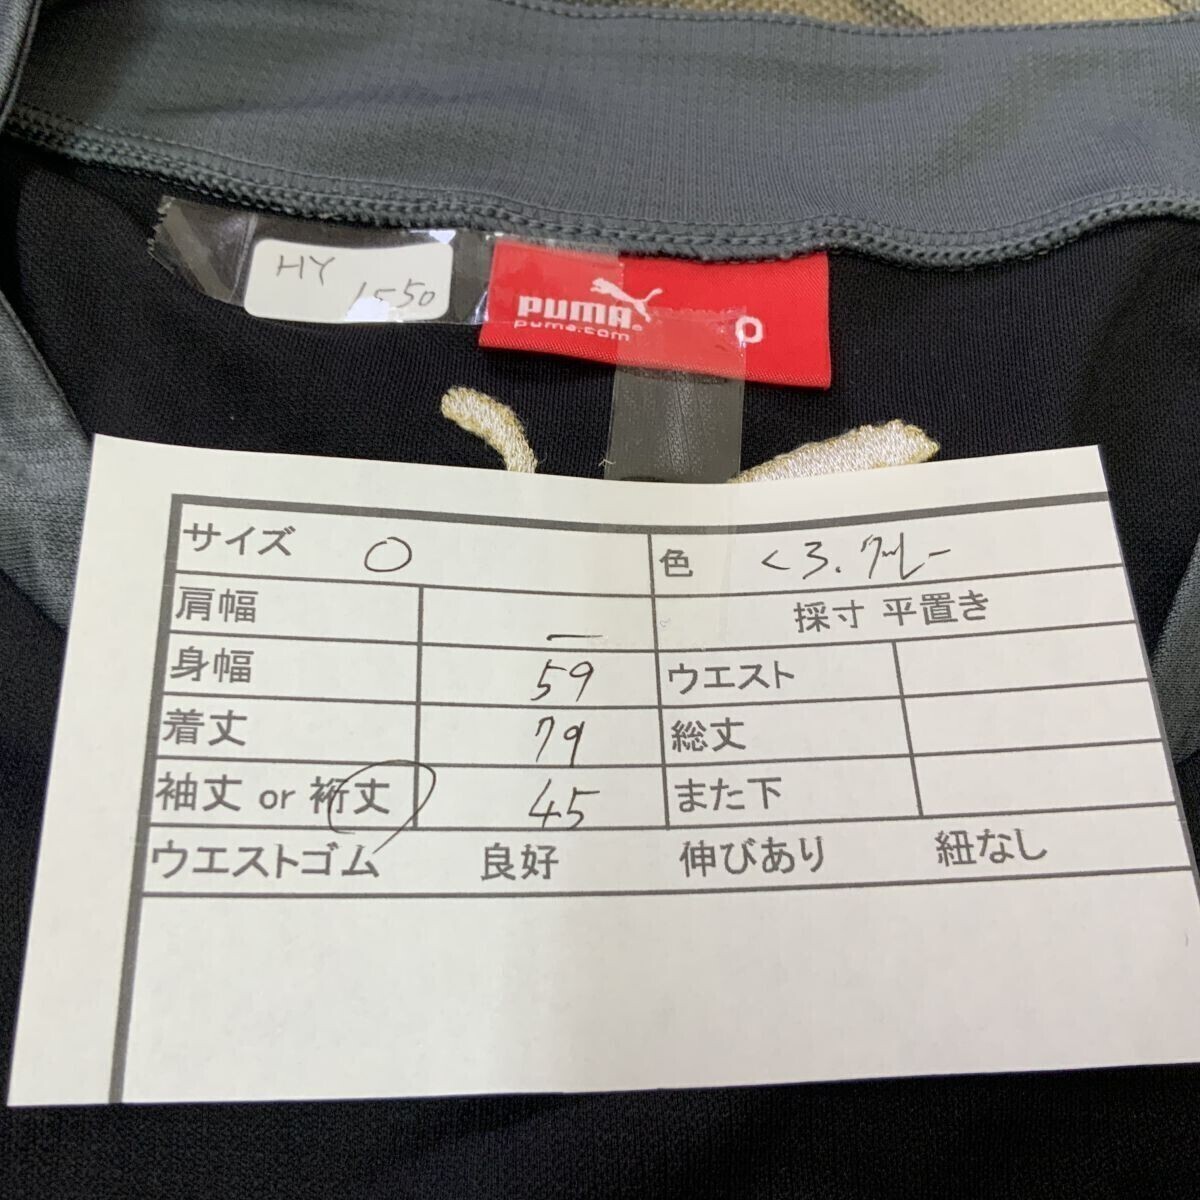 HY
1550
PUMA®
puma.com
O
サイズ O 色 くろ.グレー
肩幅 — 採寸 平置き
身幅 59 ウエスト
着丈 79 総丈
袖丈 or 裄丈 45 また下
ウエストゴム 良好 伸びあり 紐なし